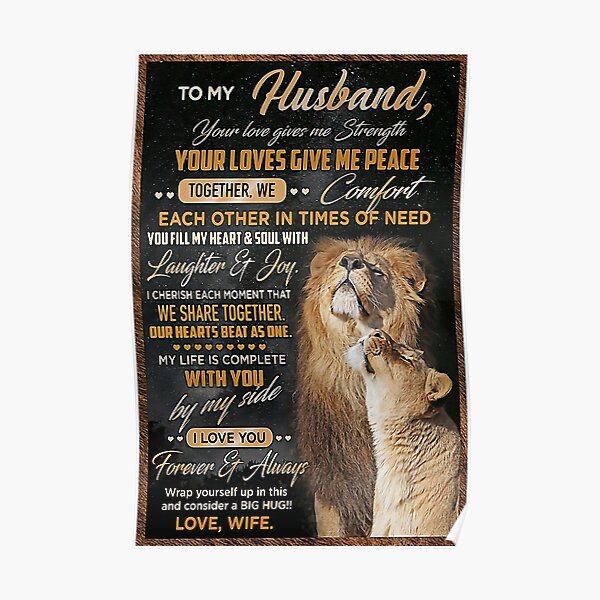 TO MY Husband,
Your love gives me Strength
YOUR LOVES GIVE ME PEACE
TOGETHER, WE Comfort
EACH OTHER IN TIMES OF NEED
YOU FILL MY HEART & SOUL WITH
Laughter & Joy.
I CHERISH EACH MOMENT THAT
WE SHARE TOGETHER.
OUR HEARTS BEAT AS ONE.
MY LIFE IS COMPLETE
WITH YOU
by my side
I LOVE YOU
Forever & Always
Wrap yourself up in this
and consider a BIG HUG!!
LOVE, WIFE.